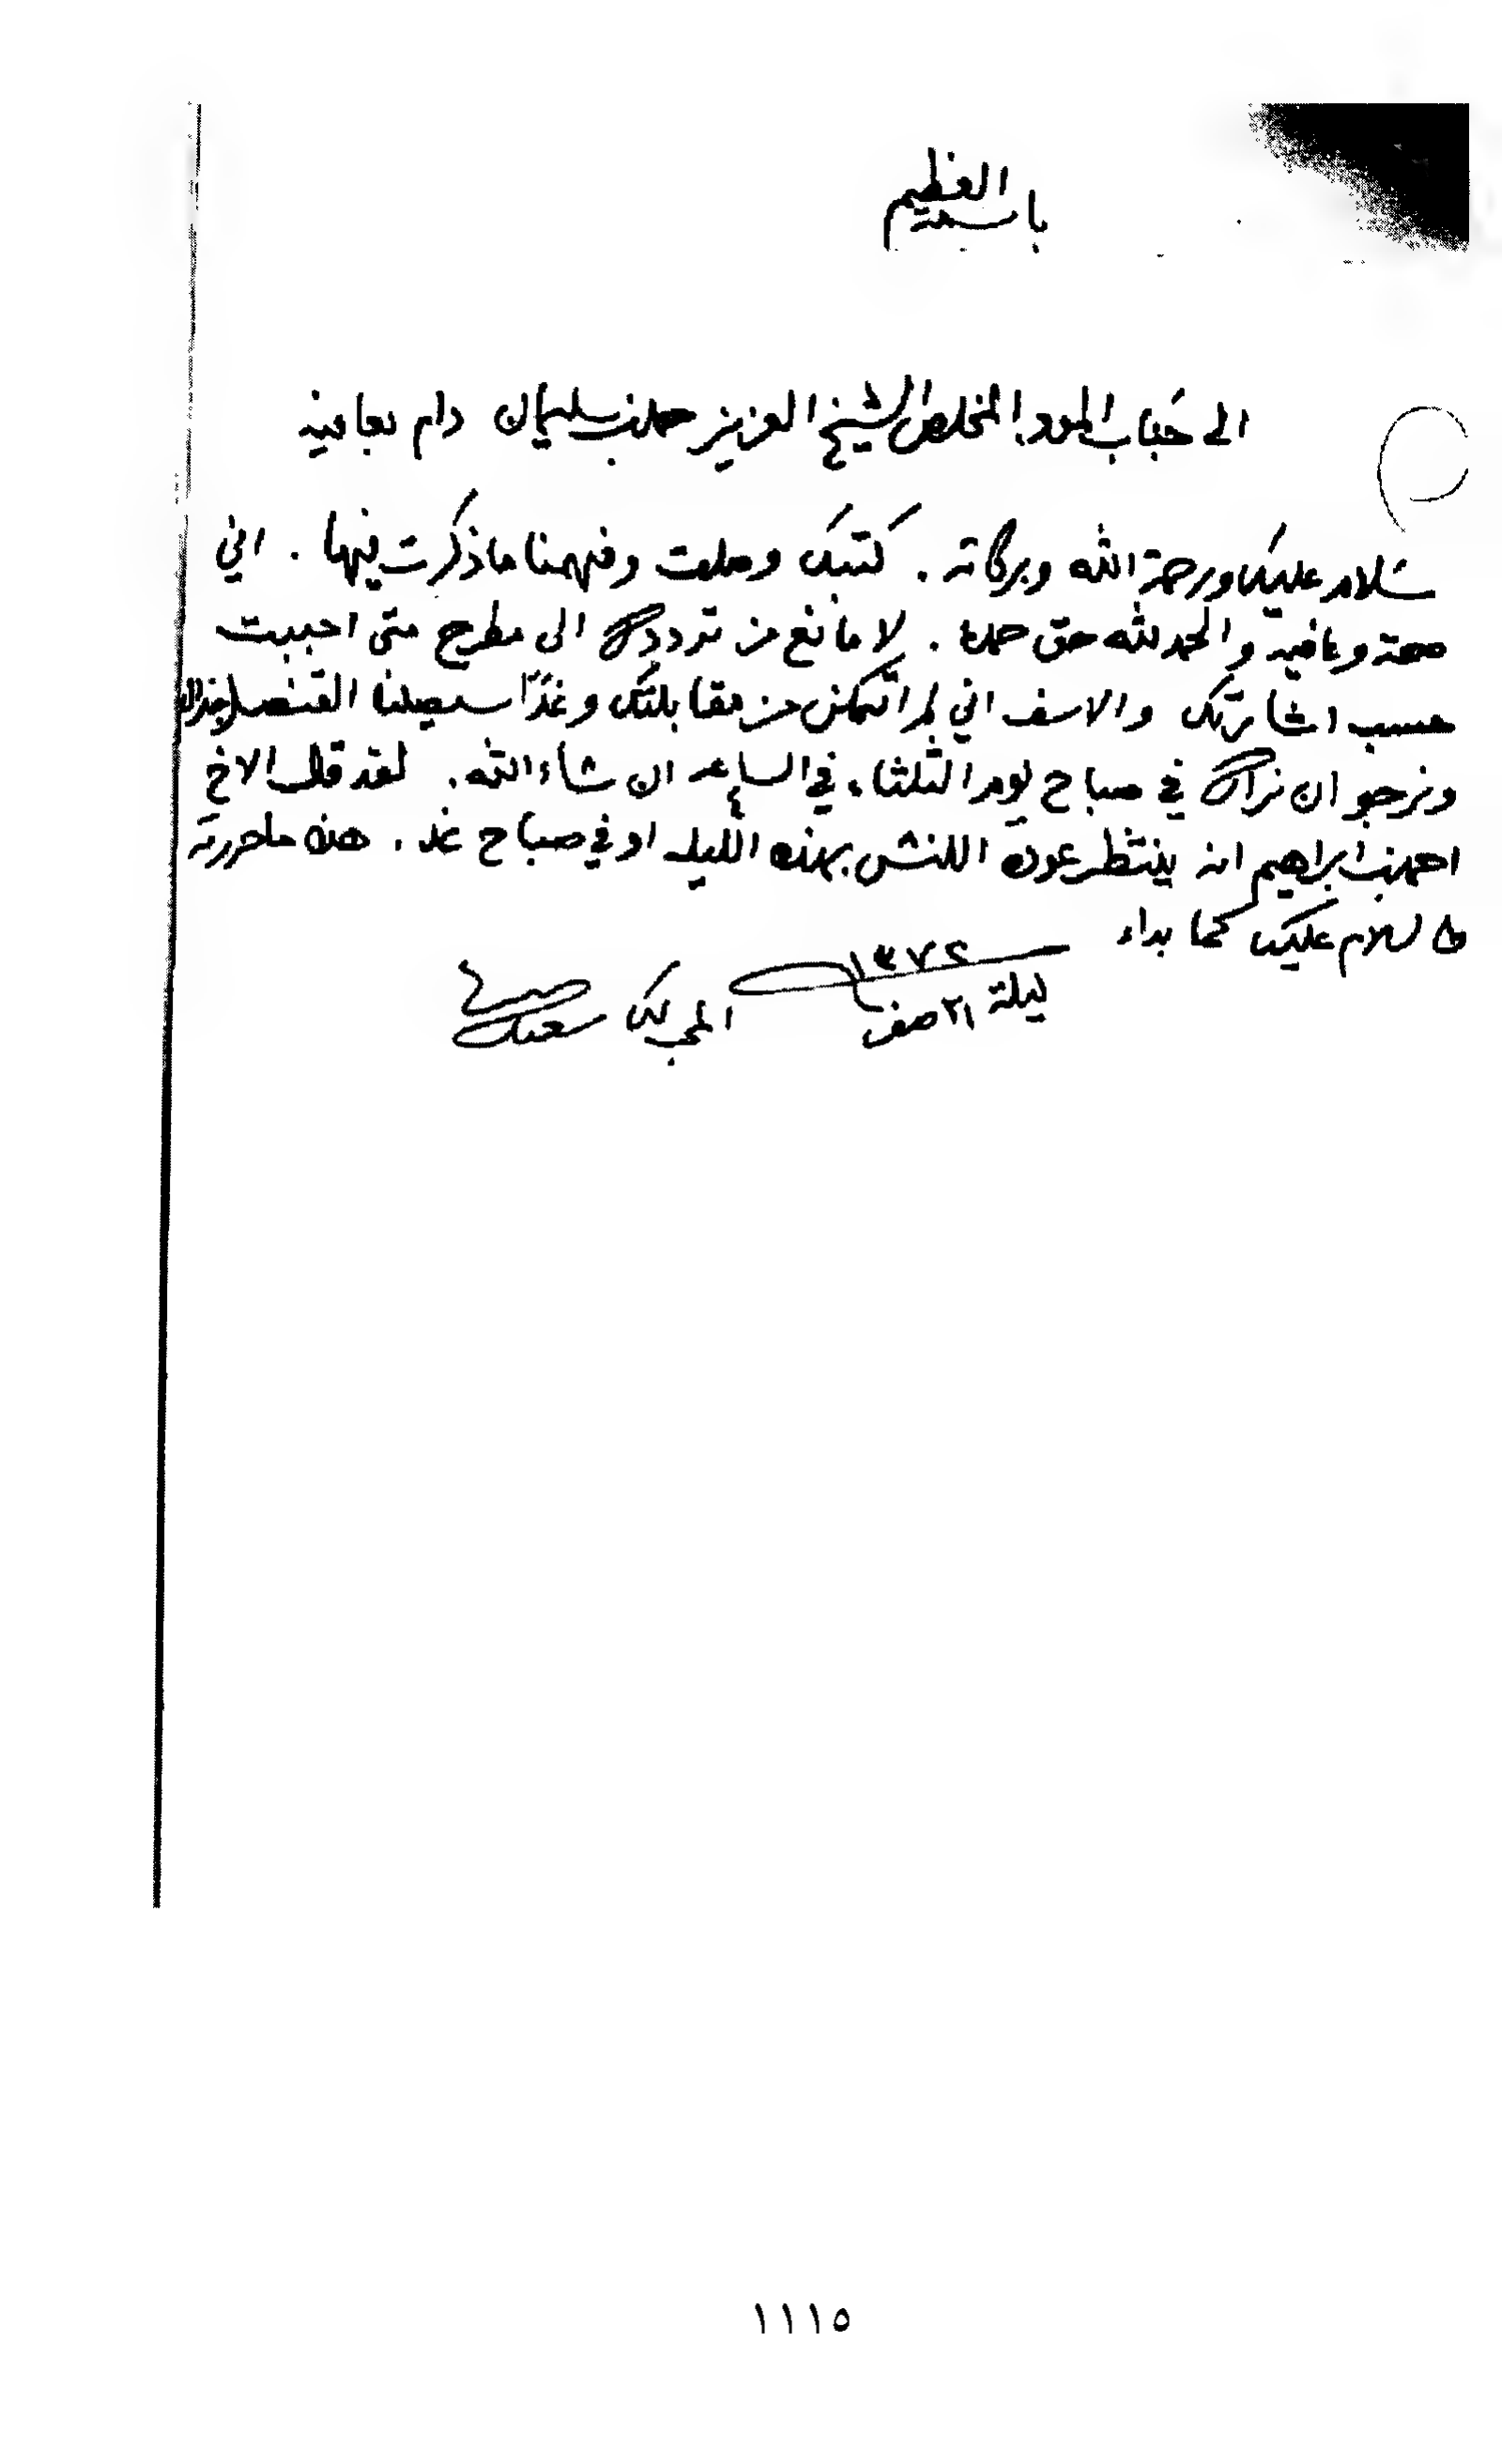 باسمه العظيم
الى جناب المودب المخلص الشيخ العزيز حمد بن سليمان دام بعافيه
سلام عليك ورحمة الله وبركاته. كتبك وصلت وفهمنا ما ذكرت فيها. اني
صحة وعافيه والحمد لله حق حمده. لا مانع من ترددك الى مطرح متى احببت
حسب اشارتك والاسف اني لم اتمكن من مقابلتك وغدًا سيصلنا القنصل
ونرجو ان نراك في صباح يوم الثلثاء في الساعه ٤ ان شاء الله. لقد قال الاخ
احمد بن ابراهيم انه ينتظر عودة اللنش بهذه الليله او في صباح غد. هذه ما حررته
والسلام عليك كما بداء
ليلة ٢١ صفر ١٣٧٢ المحب لك سعيد
١١١٥